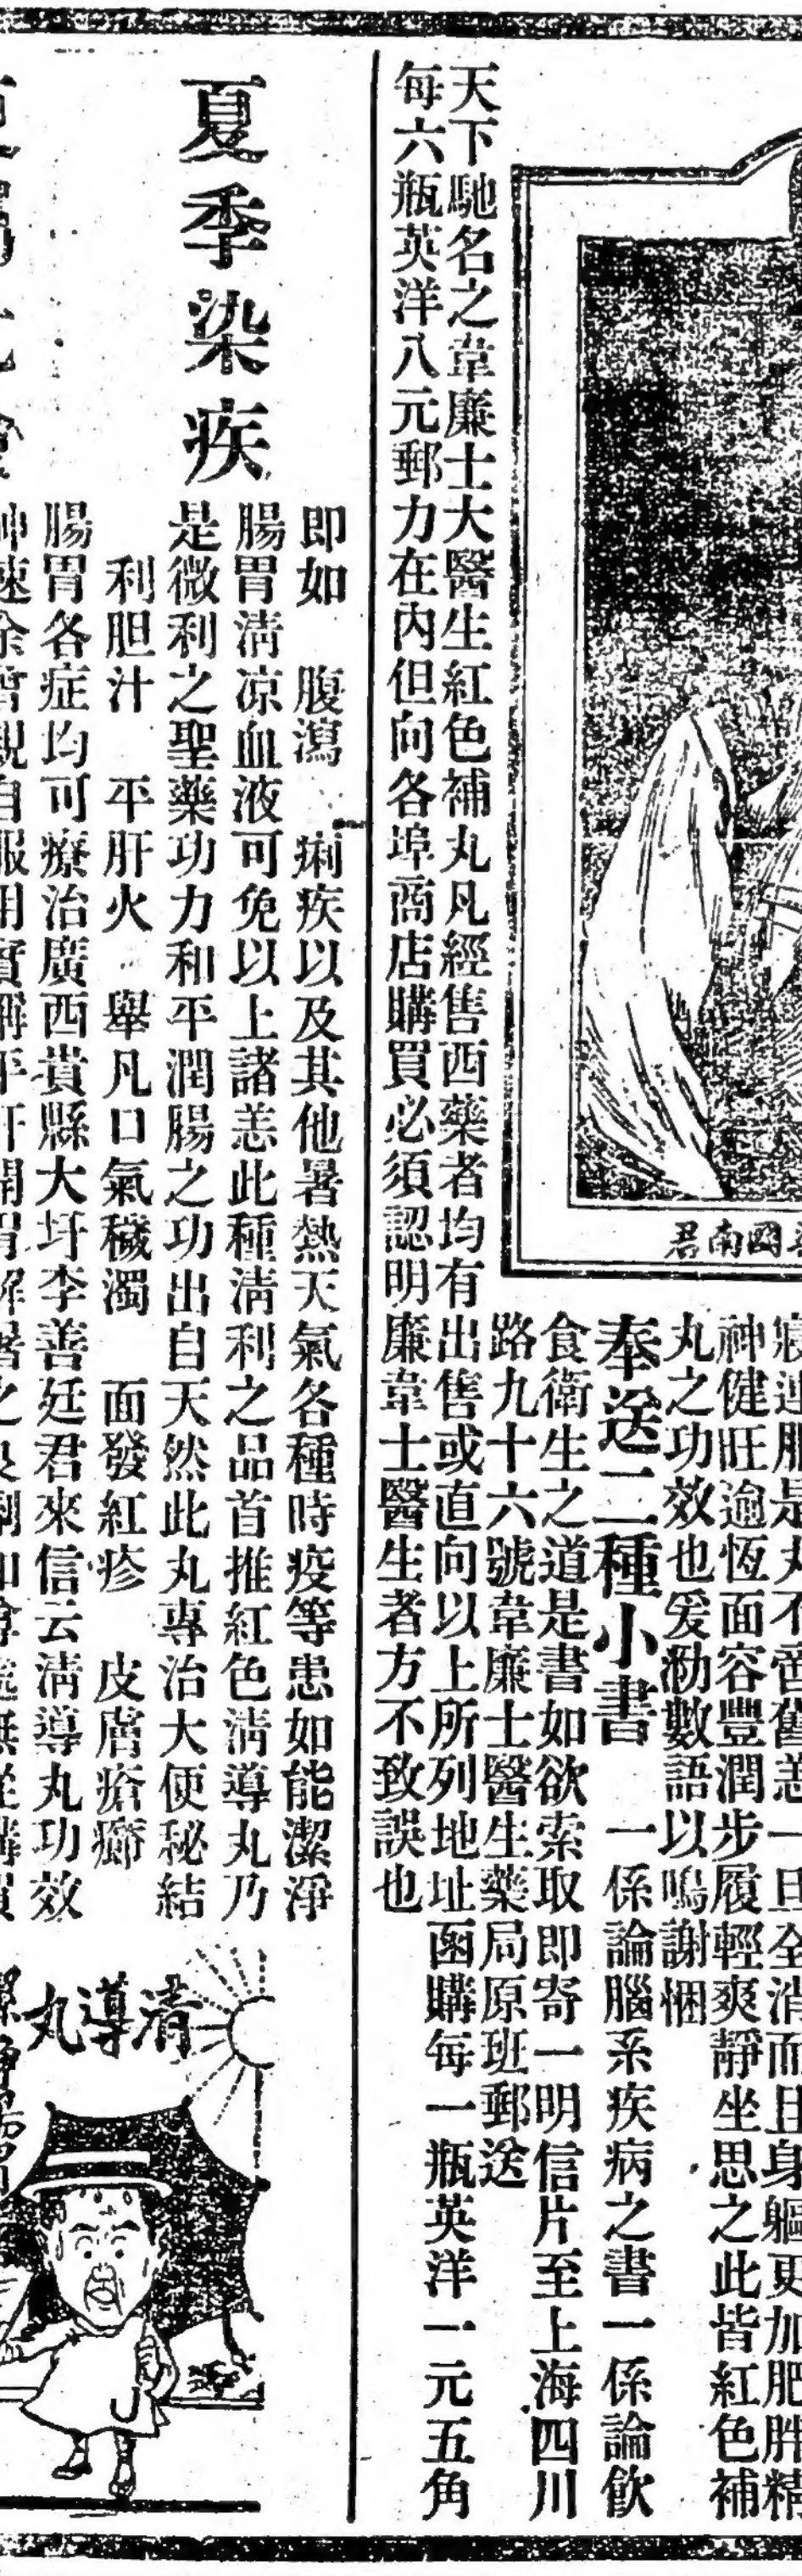 君南國
寢連服是丸不啻舊恙一旦全消而且身軀更加肥胖精
神健旺逾恆面容豐潤步履輕爽靜坐思之此皆紅色補
丸之功效也爰泐數語以鳴謝悃
奉送二種小書　一係論腦系疾病之書一係論飲
食衛生之道是書如欲索取即寄一明信片至上海四川
路九十六號韋廉士醫生藥局原班郵送
天下馳名之韋廉士大醫生紅色補丸凡經售西藥者均有出售或直向以上所列地址函購每一瓶英洋一元五角
每六瓶英洋八元郵力在內但向各埠商店購買必須認明廉韋士醫生者方不致誤也
夏季染疾
即如　腹瀉　痢疾以及其他暑熱天氣各種時疫等患如能潔淨
腸胃淸凉血液可免以上諸恙此種淸利之品首推紅色淸導丸乃
是微利之聖藥功力和平潤腸之功出自天然此丸專治大便秘結
利胆汁　平肝火　舉凡口氣穢濁　面發紅疹　皮膚瘡癤
腸胃各症均可療治廣西貴縣大圩李善廷君來信云淸導丸功效
淸導丸